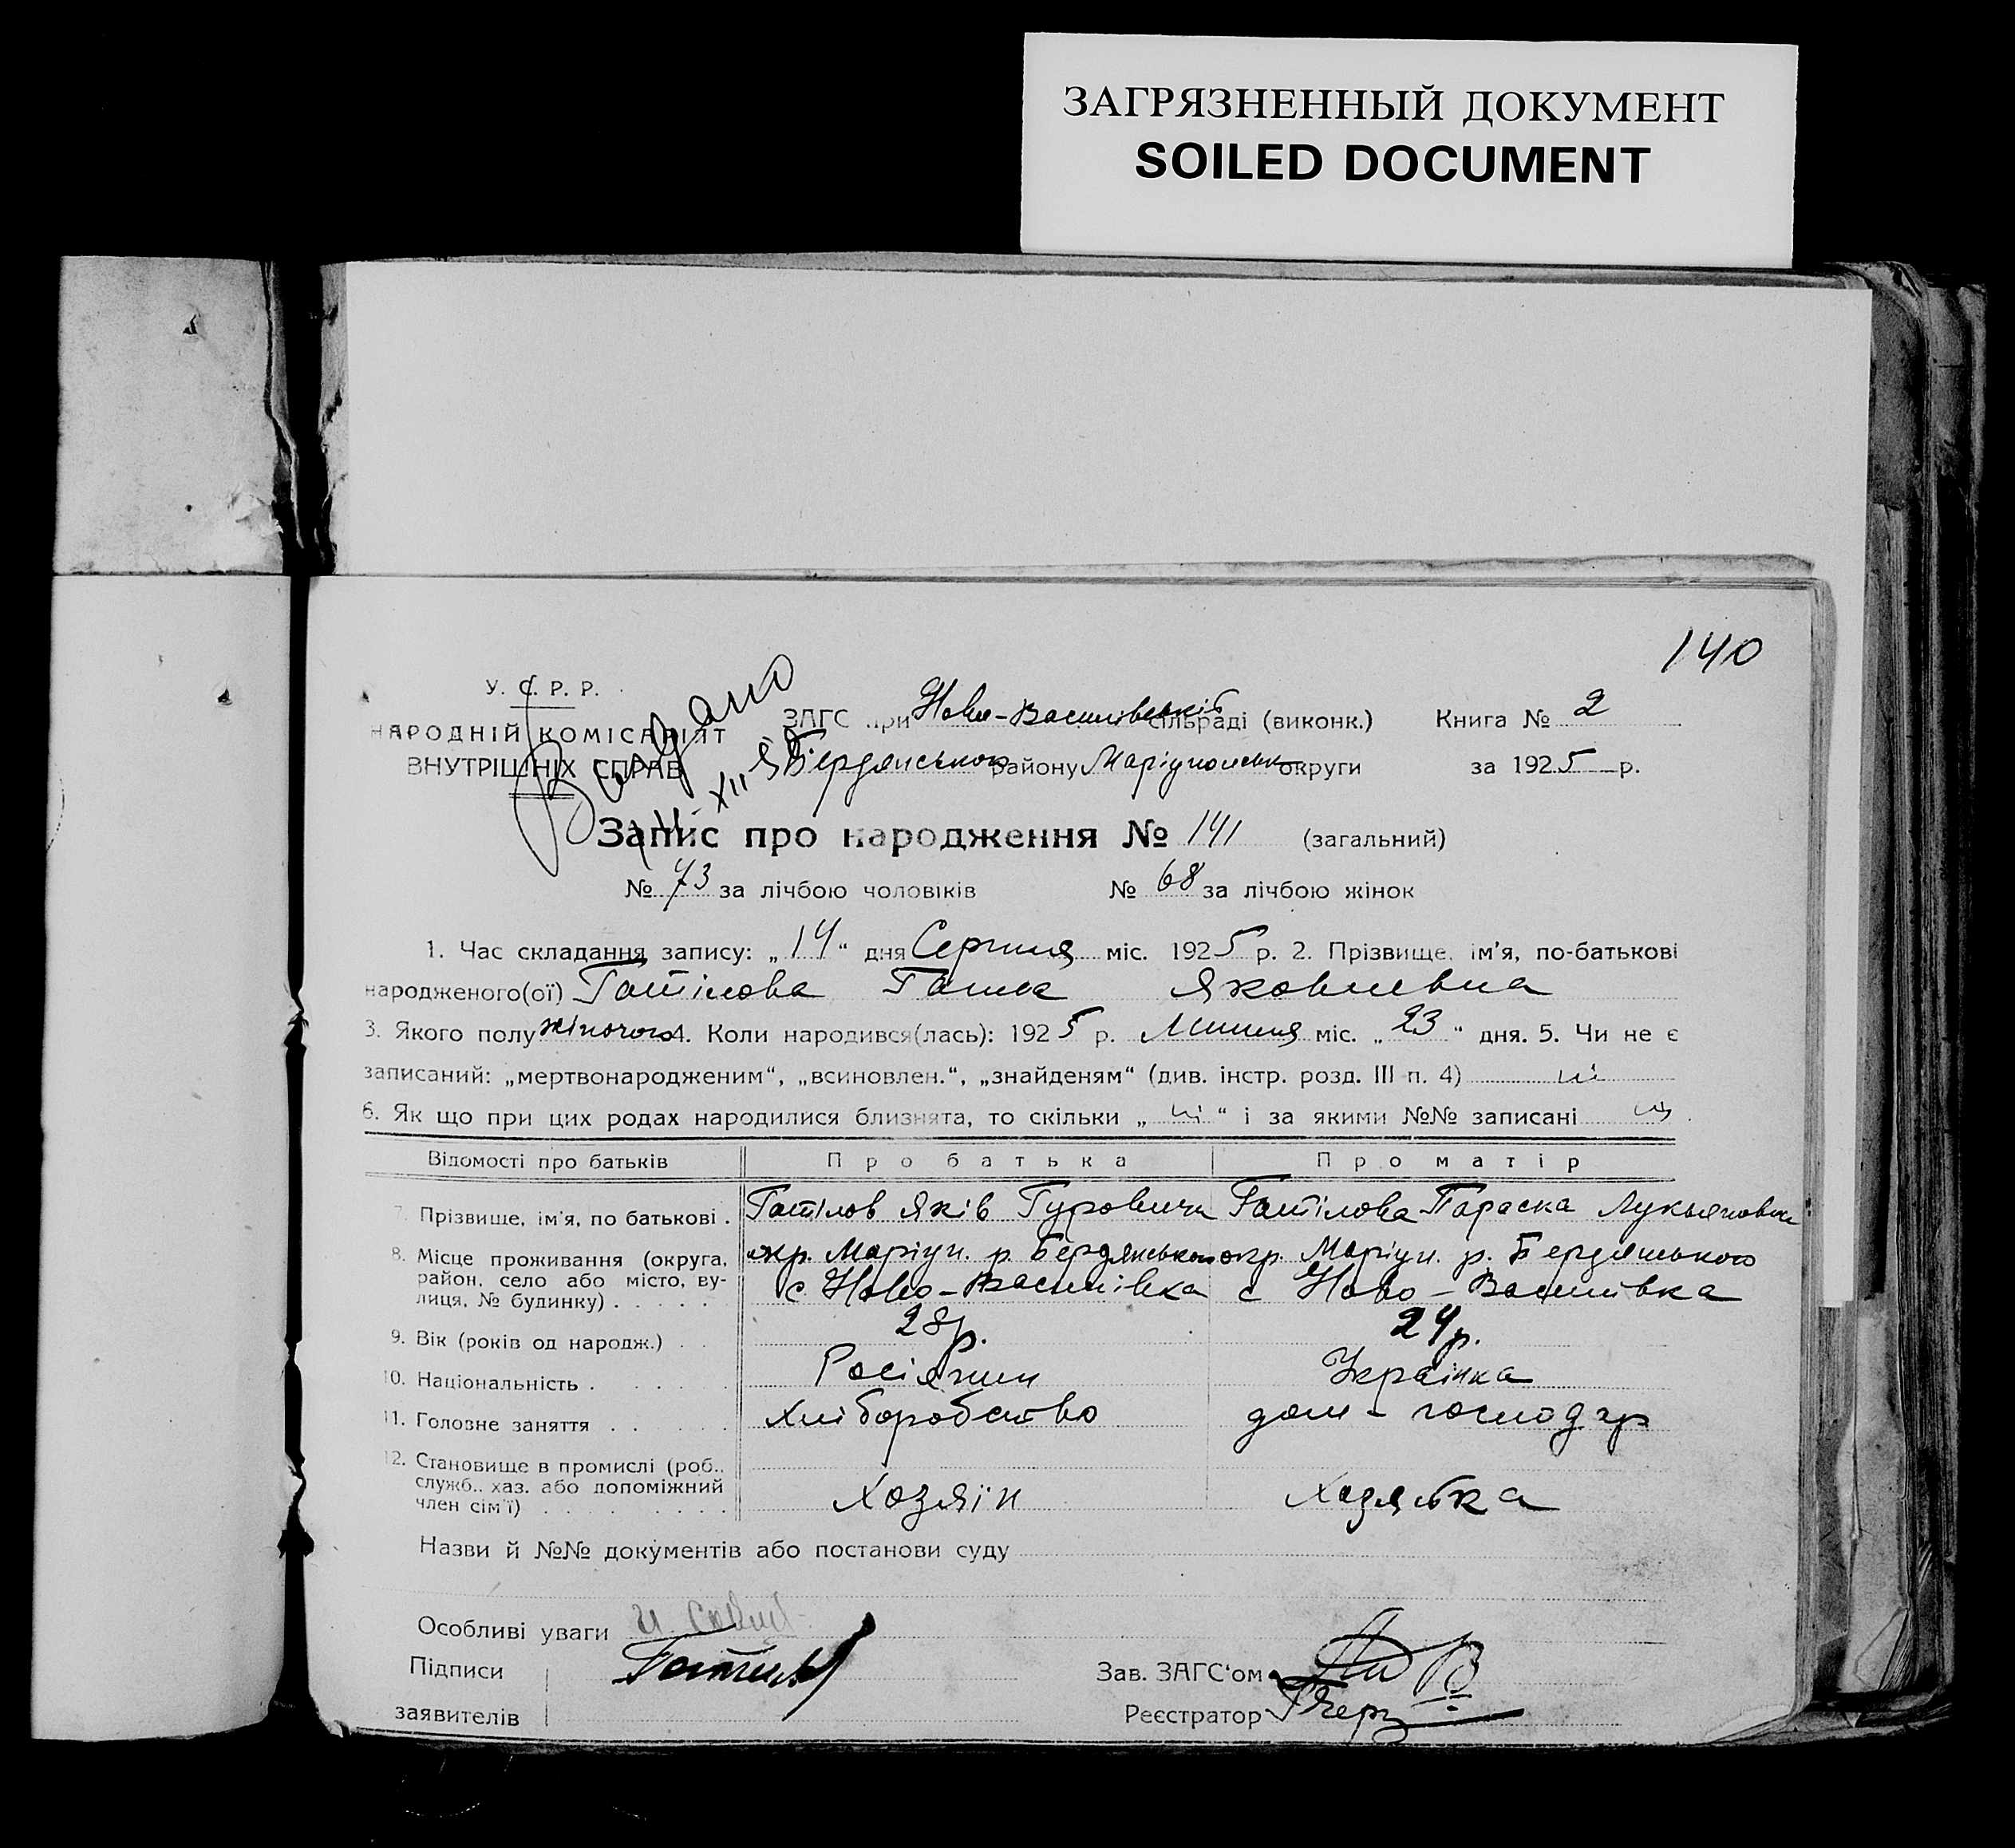 ЗАГРЯЗНЕННЫЙ ДОКУМЕНТ
SOILED DOCUMENT
140
У. С. Р. Р.
НАРОДНІЙ КОМІСАРІЯТ
ВНУТРІШНІХ СПРАВ
Видано
ЗАГС при Ново-Василівській сільраді (виконк.) Книга № 2
Бердянського району Маріупольськ округи за 1925 р.
Запис про народження № 141 (загальний)
№ 73 за лічбою чоловіків № 68 за лічбою жінок
1. Час складання запису: „14“ дня Серпня міс. 1925 р. 2. Прізвище, ім'я, по-батькові
народженого(ої) Гатілова Ганна Яковлевна
3. Якого полу жіночого 4. Коли народився(лась): 1925 р. Липня міс. „23“ дня. 5. Чи не є
записаний: „мертвонародженим“, „всиновлен.“, „знайденям“ (див. інстр. розд. III п. 4) ні
6. Як що при цих родах народилися близнята, то скільки „ні“ і за якими №№ записані ні.
Відомості про батьків Про батька Про матір
7. Прізвище, ім'я, по батькові . Гатілов Яків Гурович Гатілова Параска Лукьяновна
8. Місце проживання (округа, окр. Маріуп. р. Бердянського окр. Маріуп. р. Бердянського
район, село або місто, ву- с Ново-Василівка с Ново-Василівка
лиця, № будинку) . . . . .
9. Вік (років од народж.) . . 28 р. 24 р.
10. Національність . . . . . Росіянин Українка
11. Головне заняття . . . . . Хліборобство дом-господар
12. Становище в промислі (роб.,
служб., хаз. або допоміжний Хозяін Хозяйка
член сім'ї) . . . . . . . .
Назви й №№ документів або постанови суду
Особливі уваги
Підписи
Зав. ЗАГС'ом
заявителів
Реєстратор